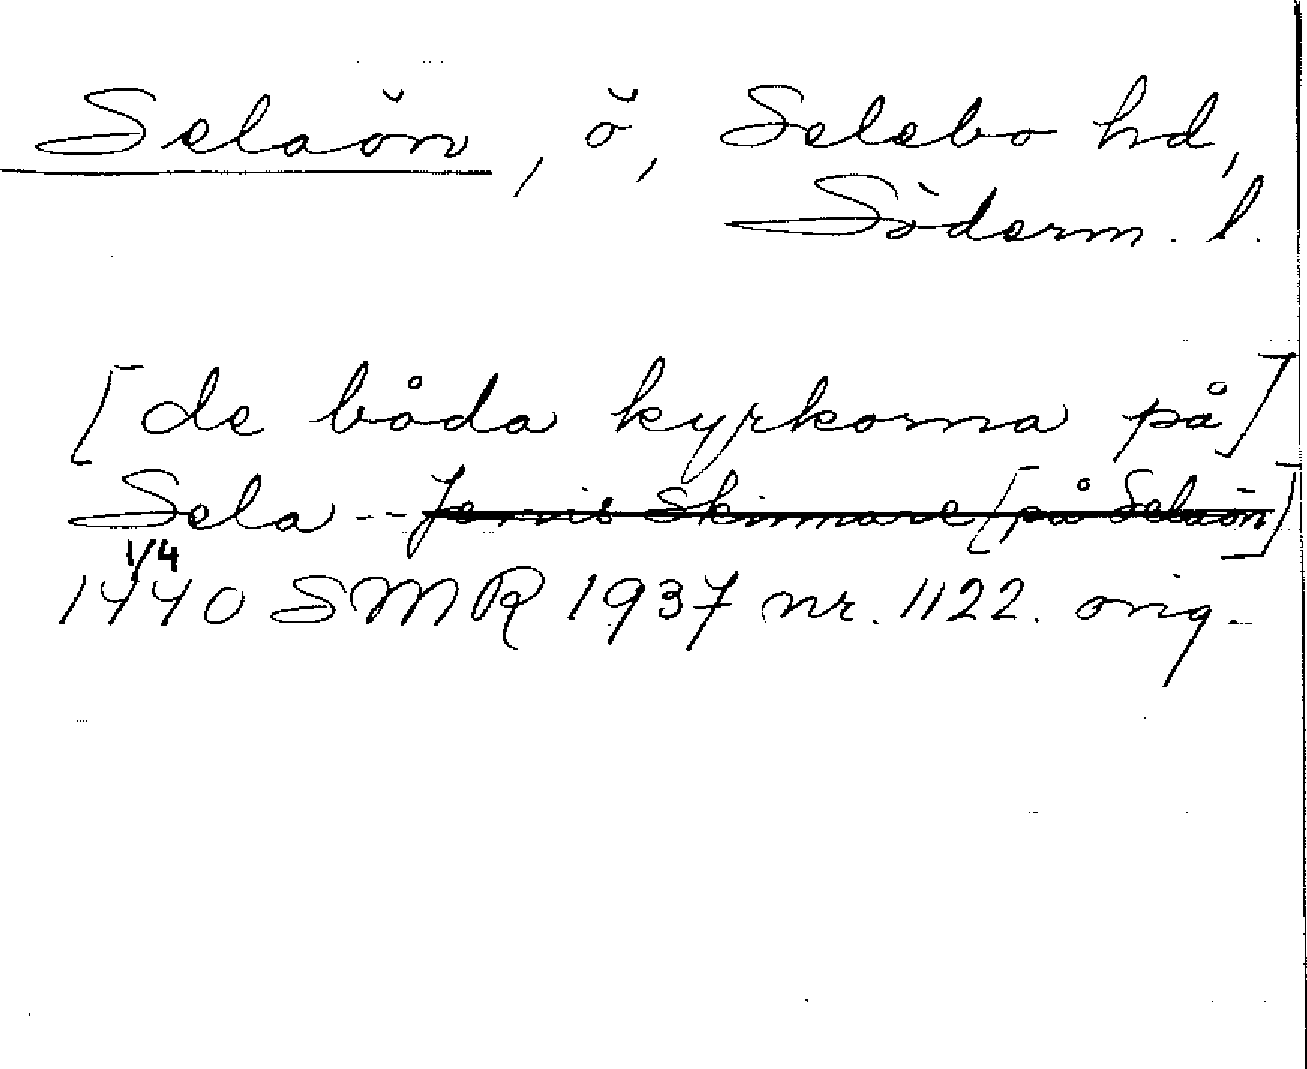 Selaön, ö, Selebo hd,
Söderm. l.
[de båda kyrkorna på]
Sela -- Jennis Skinnare [på Selaön]
1/4
1440 SMR 1937 nr. 1122. orig.